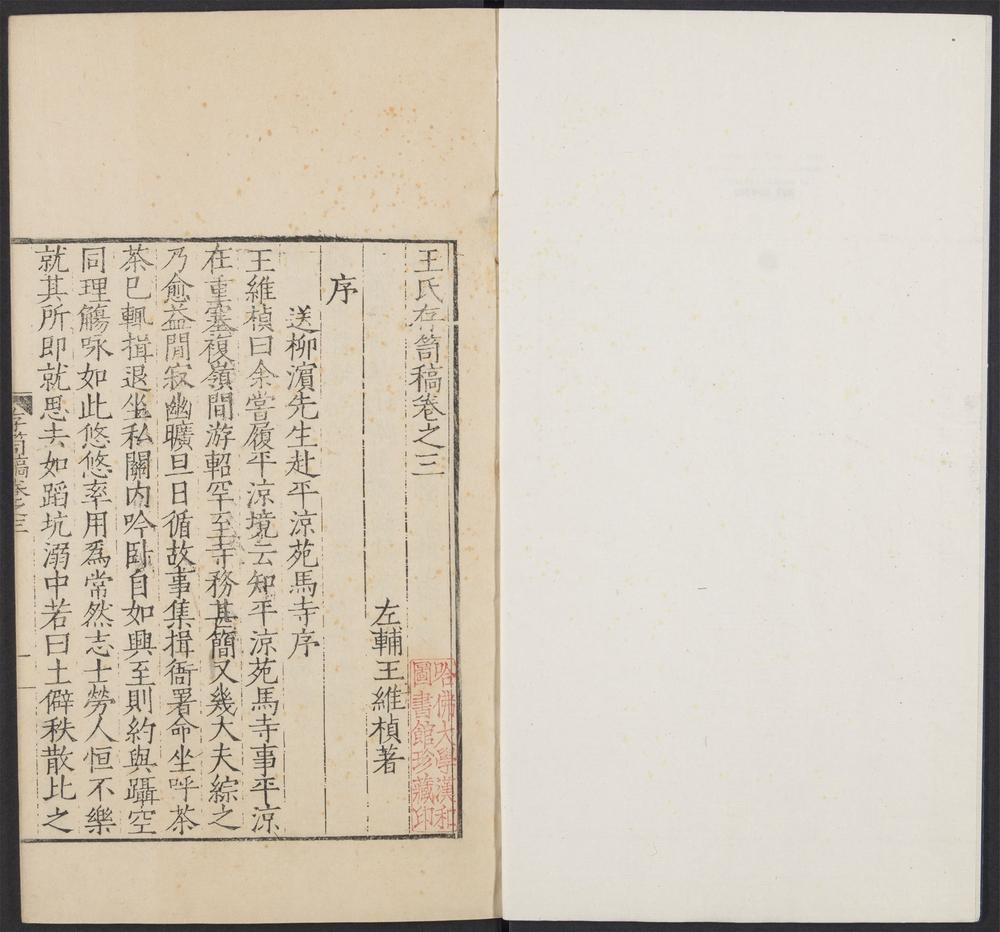 王氏存笥稿卷之三
左輔王維楨著
序
送柳濵先生赴平涼苑馬寺序
王維楨曰余嘗履平涼境云知平涼苑馬寺事平涼
在重塞複嶺間游軺罕至寺務甚簡又幾大夫綜之
乃愈益閒寂幽曠旦日循故事集揖衙署命坐呼茶
茶已輒揖退坐私闗内吟卧自如興至則約與躡空
同理觴咏如此悠悠率用爲常然志士勞人恒不樂
就其所即就思去如蹈坑溺中若曰土僻秩散比之
存笥稿卷之三
一
哈佛大學漢和
圖書館珍藏印